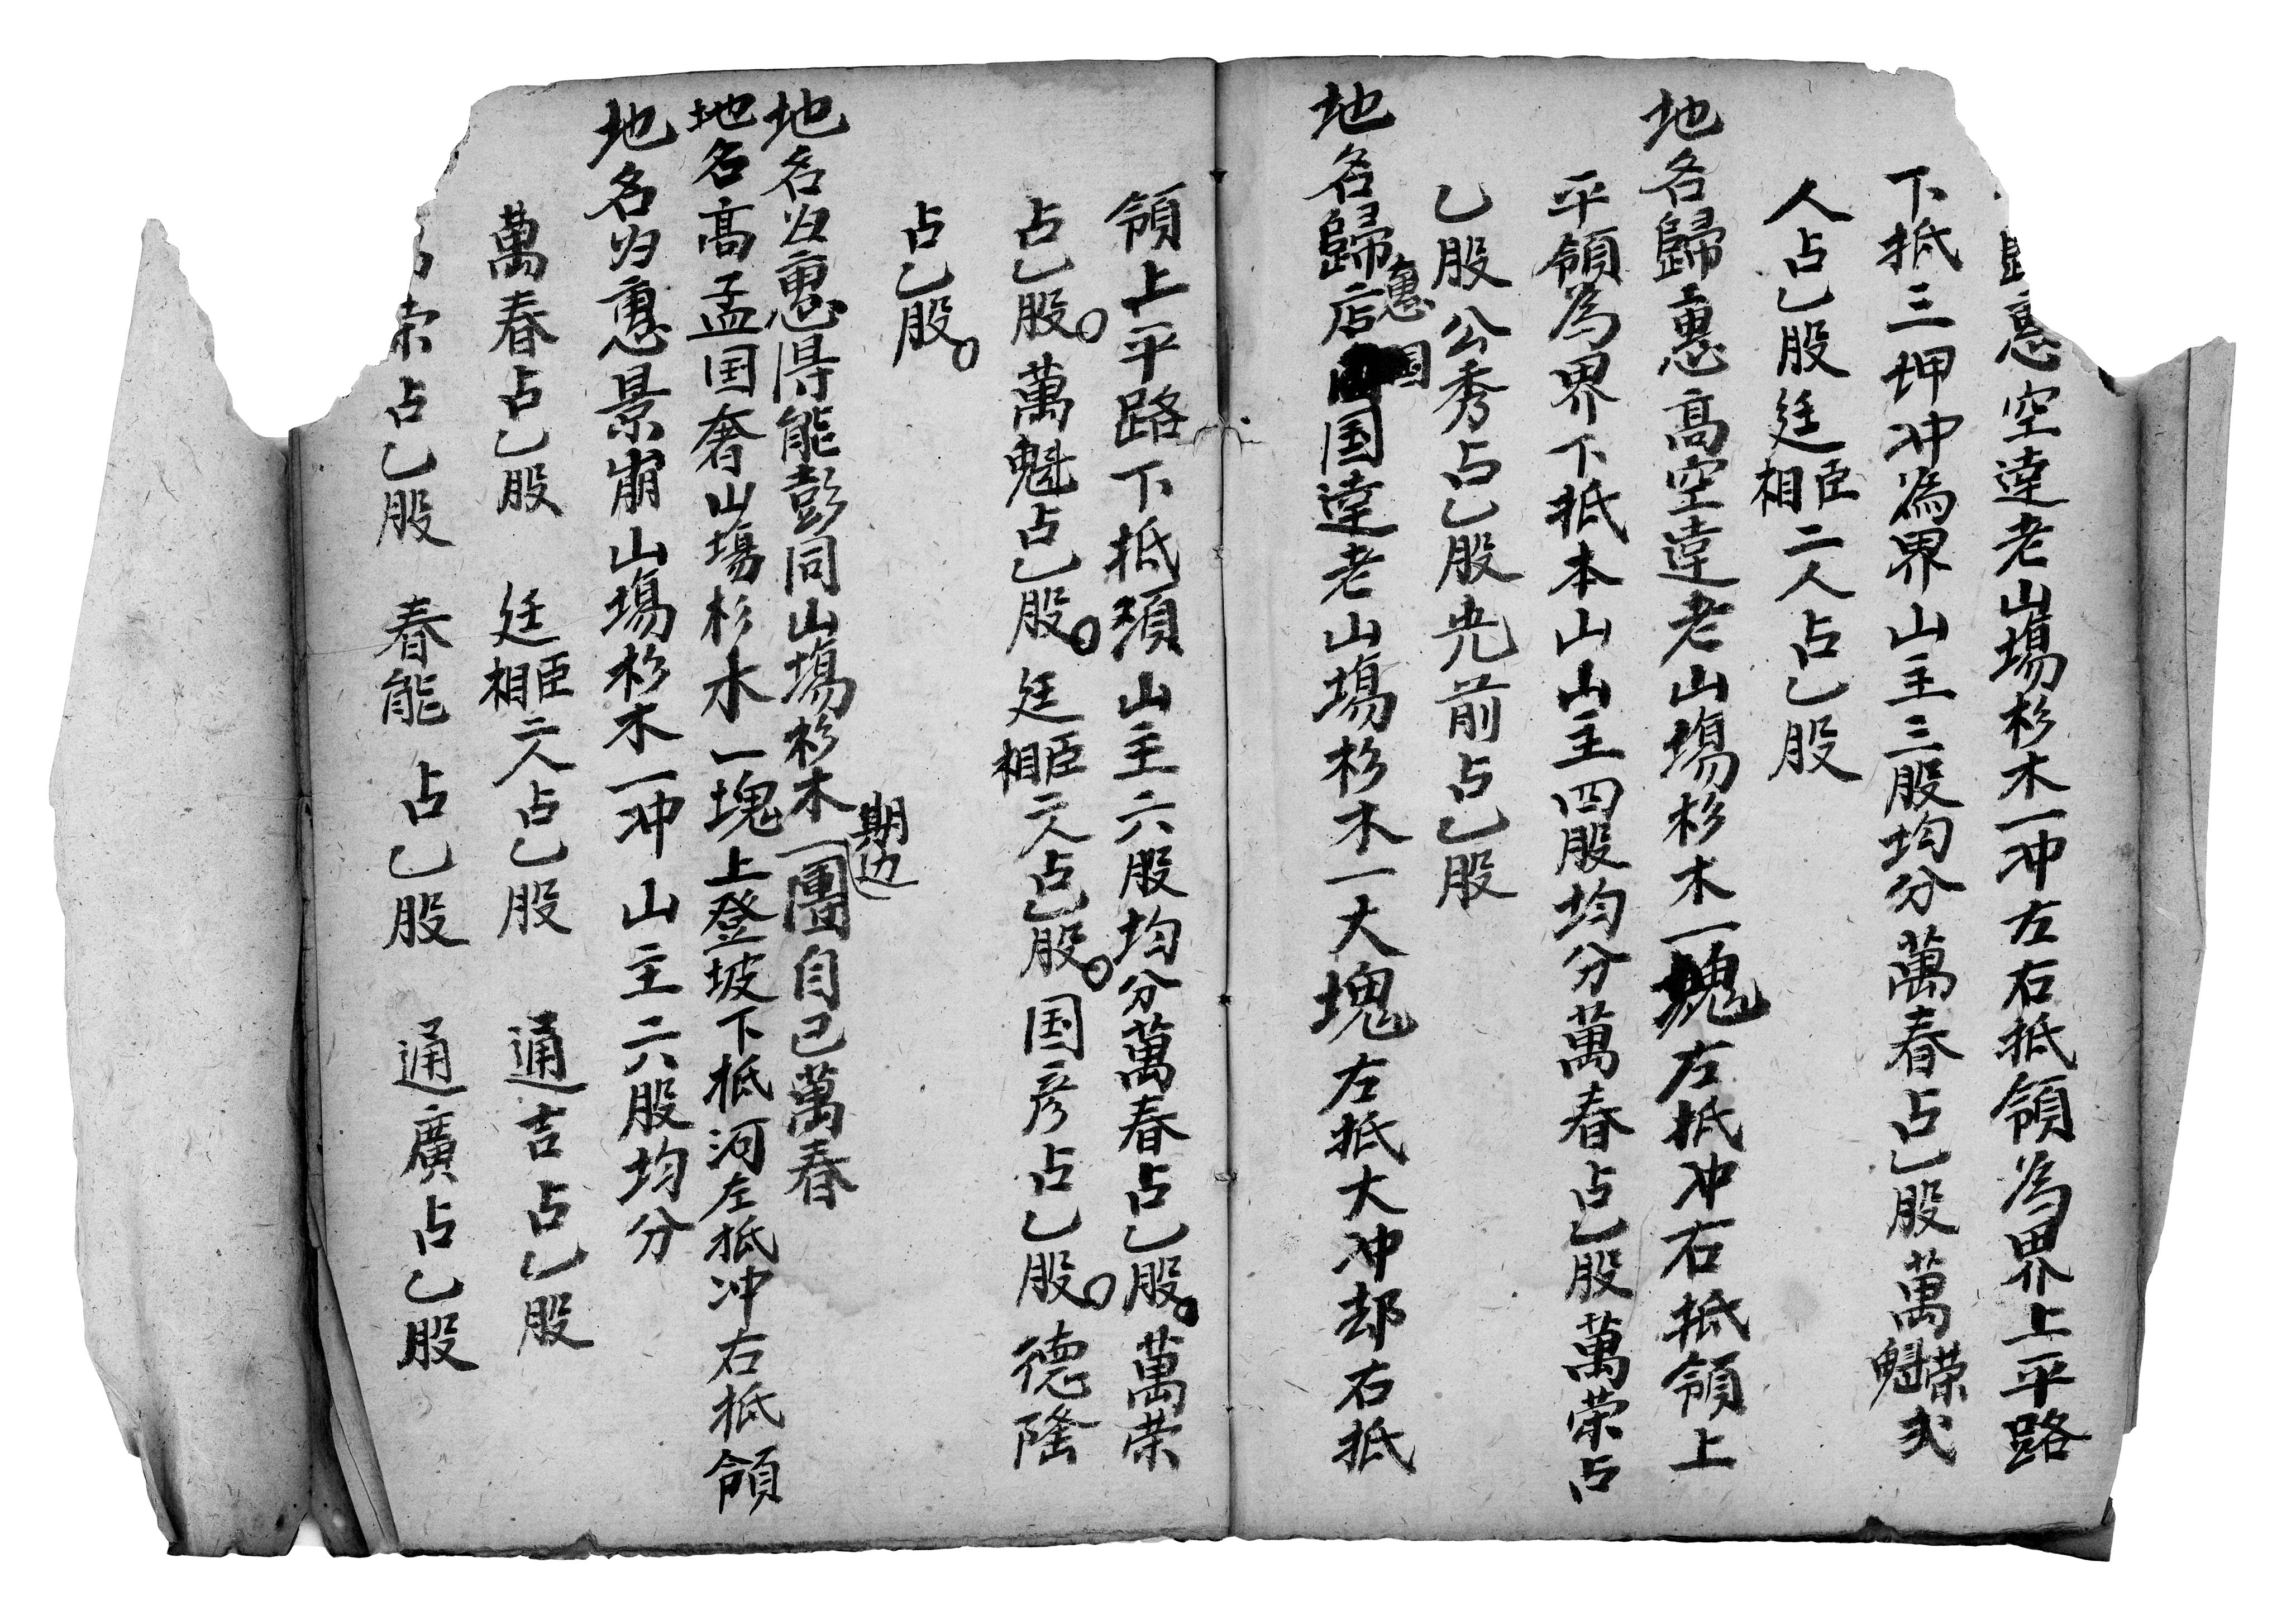 歸惠空違老山塲杉木一冲左右抵領為界上平路
下抵三坤冲為界山主三股均分萬春占乙股萬荣魁弍
人占乙股廷相臣二人占乙股
地名歸惠高空違老山塲杉木一塊左抵冲右抵領上
平領為界下抵本山山主四股均分萬春占乙股萬荣占
乙股公秀占乙股光前占乙股
地名歸店惠国国違老山塲杉木一大塊左抵大冲却右抵
領上平路下抵須山主六股均分萬春占乙股。萬荣
占乙股。萬魁占乙股。廷相臣二人占乙股。国彦占乙股。德隆
占乙股。
地名归惠得能彭同山塲杉木一團自己萬春
期边
地名高孟国奢山塲杉木一塊上登坡下抵河左抵冲右抵領
地名归惠景崩山塲杉木一冲山主六股均分
萬春占乙股 廷相臣二人占乙股 通吉占乙股
荣占乙股 春能占乙股 通廣占乙股